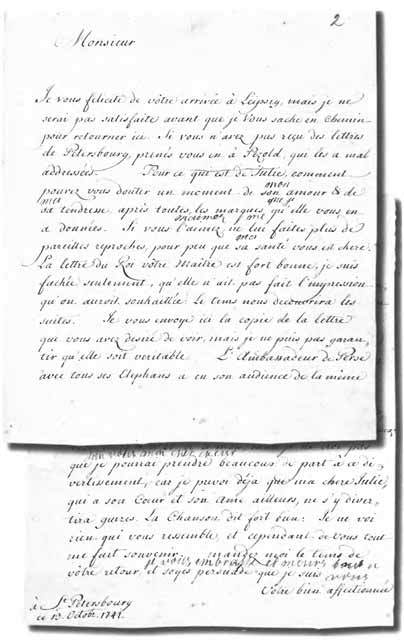 2
Monsieur
Je vous felicite de vôtre arrivée à Leipzig, mais je ne
serai pas satisfaite avant que je Vous sache en Chemin
pour retourner ici. Si vous n'avez pas reçu des lettres
de Petersbourg, prenés vous en à Pezold, qui les a mal
addressées. Pour ce que est de Julie, comment
mon
pouvez vous douter un moment de son amour & de
ma que je
sa tendresse après toutes les marques, qu'elle vous en
me
a données. Si vous l'aimez ne lui faites plus de
ma
pareilles reproches, pour peu que sa santé vous est chere.
La lettre du Roi vôtre Maitre est fort bonne, je suis
fachée seulement, qu'elle n'ait pas fait l'impression
qu'on auroit souhaittée. Le tems nous decouvrira les
suites. Je vous envoye ici la copie de la lettre
que vous avez desiré de voir, mais je ne puis pas garan-
tir qu'elle soit veritable. L'Ambassadeur de Perse
avec tous ses Elephans a eu son audience de la même
que je pourrai prendre beaucoup de part à ce di-
vertissement, car je prevoi déja que ma chere Julie,
qui a son Cœur et son Ame ailleurs, ne s'y diver-
tira guères. La Chanson dit fort bien: Je ne voi
rien qui vous ressemble, et cependant de vous tout
me fait souvenir. mandez moi le tems de
je vous embrasse et meurs
vôtre retour, et soyez persuadé que je suis
vous
Votre bien affectionnée
à St Petersbourg
ce 13 Octobr. 1741.